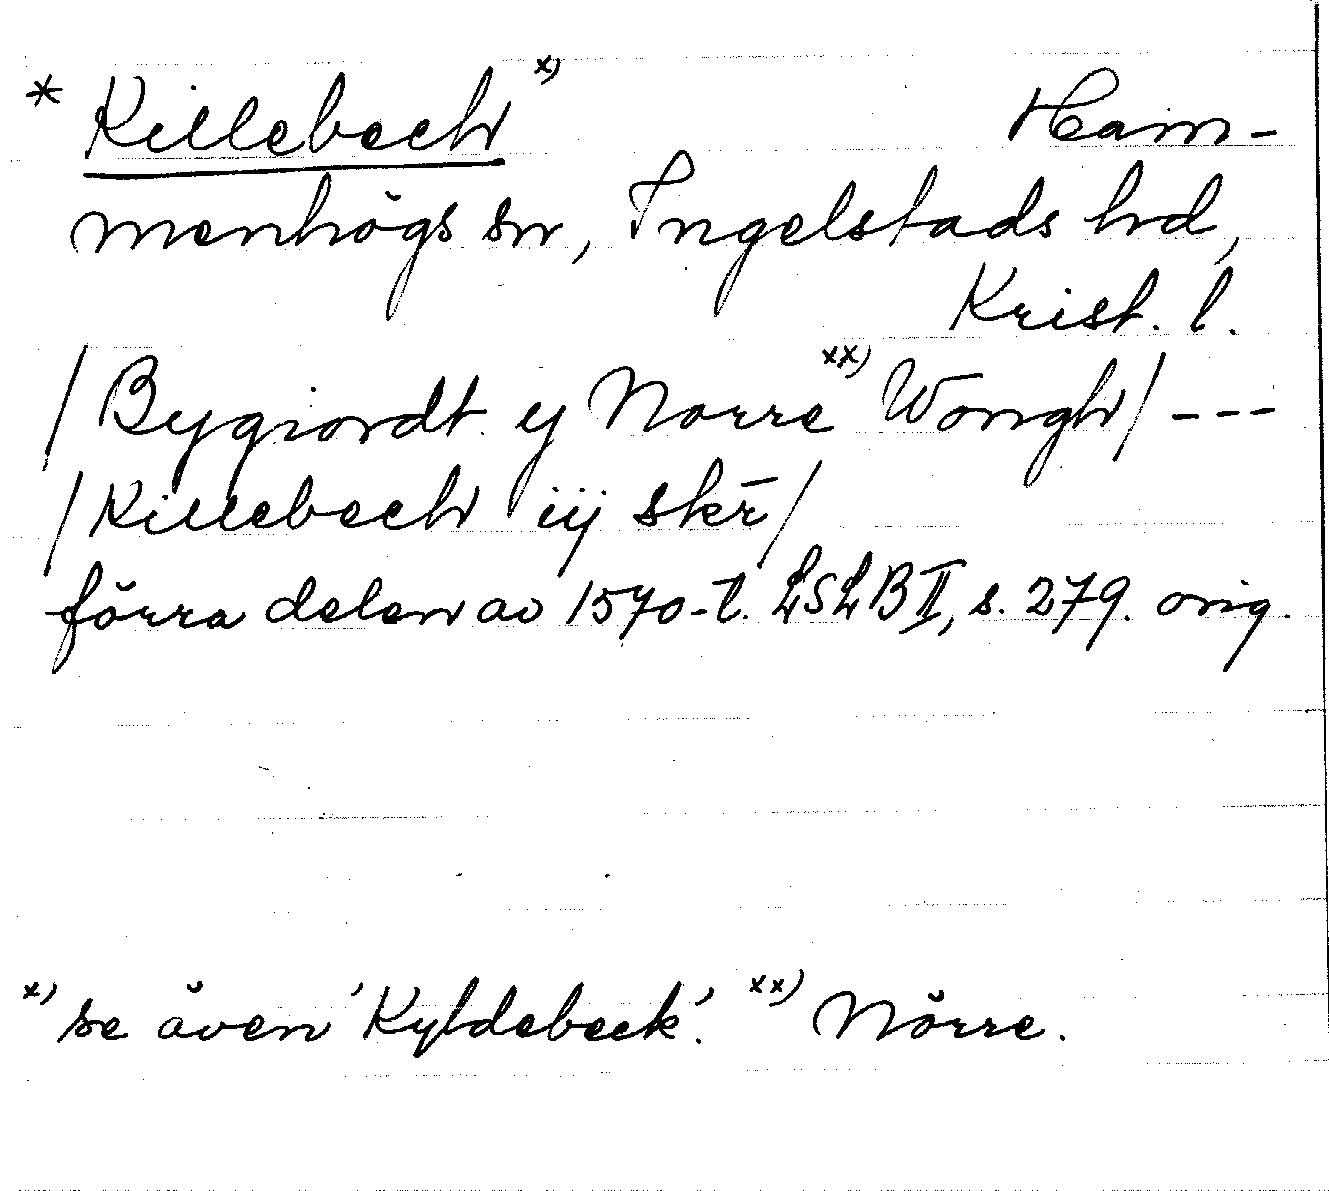 * Killebech x) Ham-
menhögs sn, Ingelstads hd,
Krist. l.
/Bygiordt y Norre xx) Wongh/ ---
/Killebech iij skr̄/
förra delen av 1570-t. LSLB II, s. 279. orig.
x) se även 'Kyldebeck'. xx) Nörre.